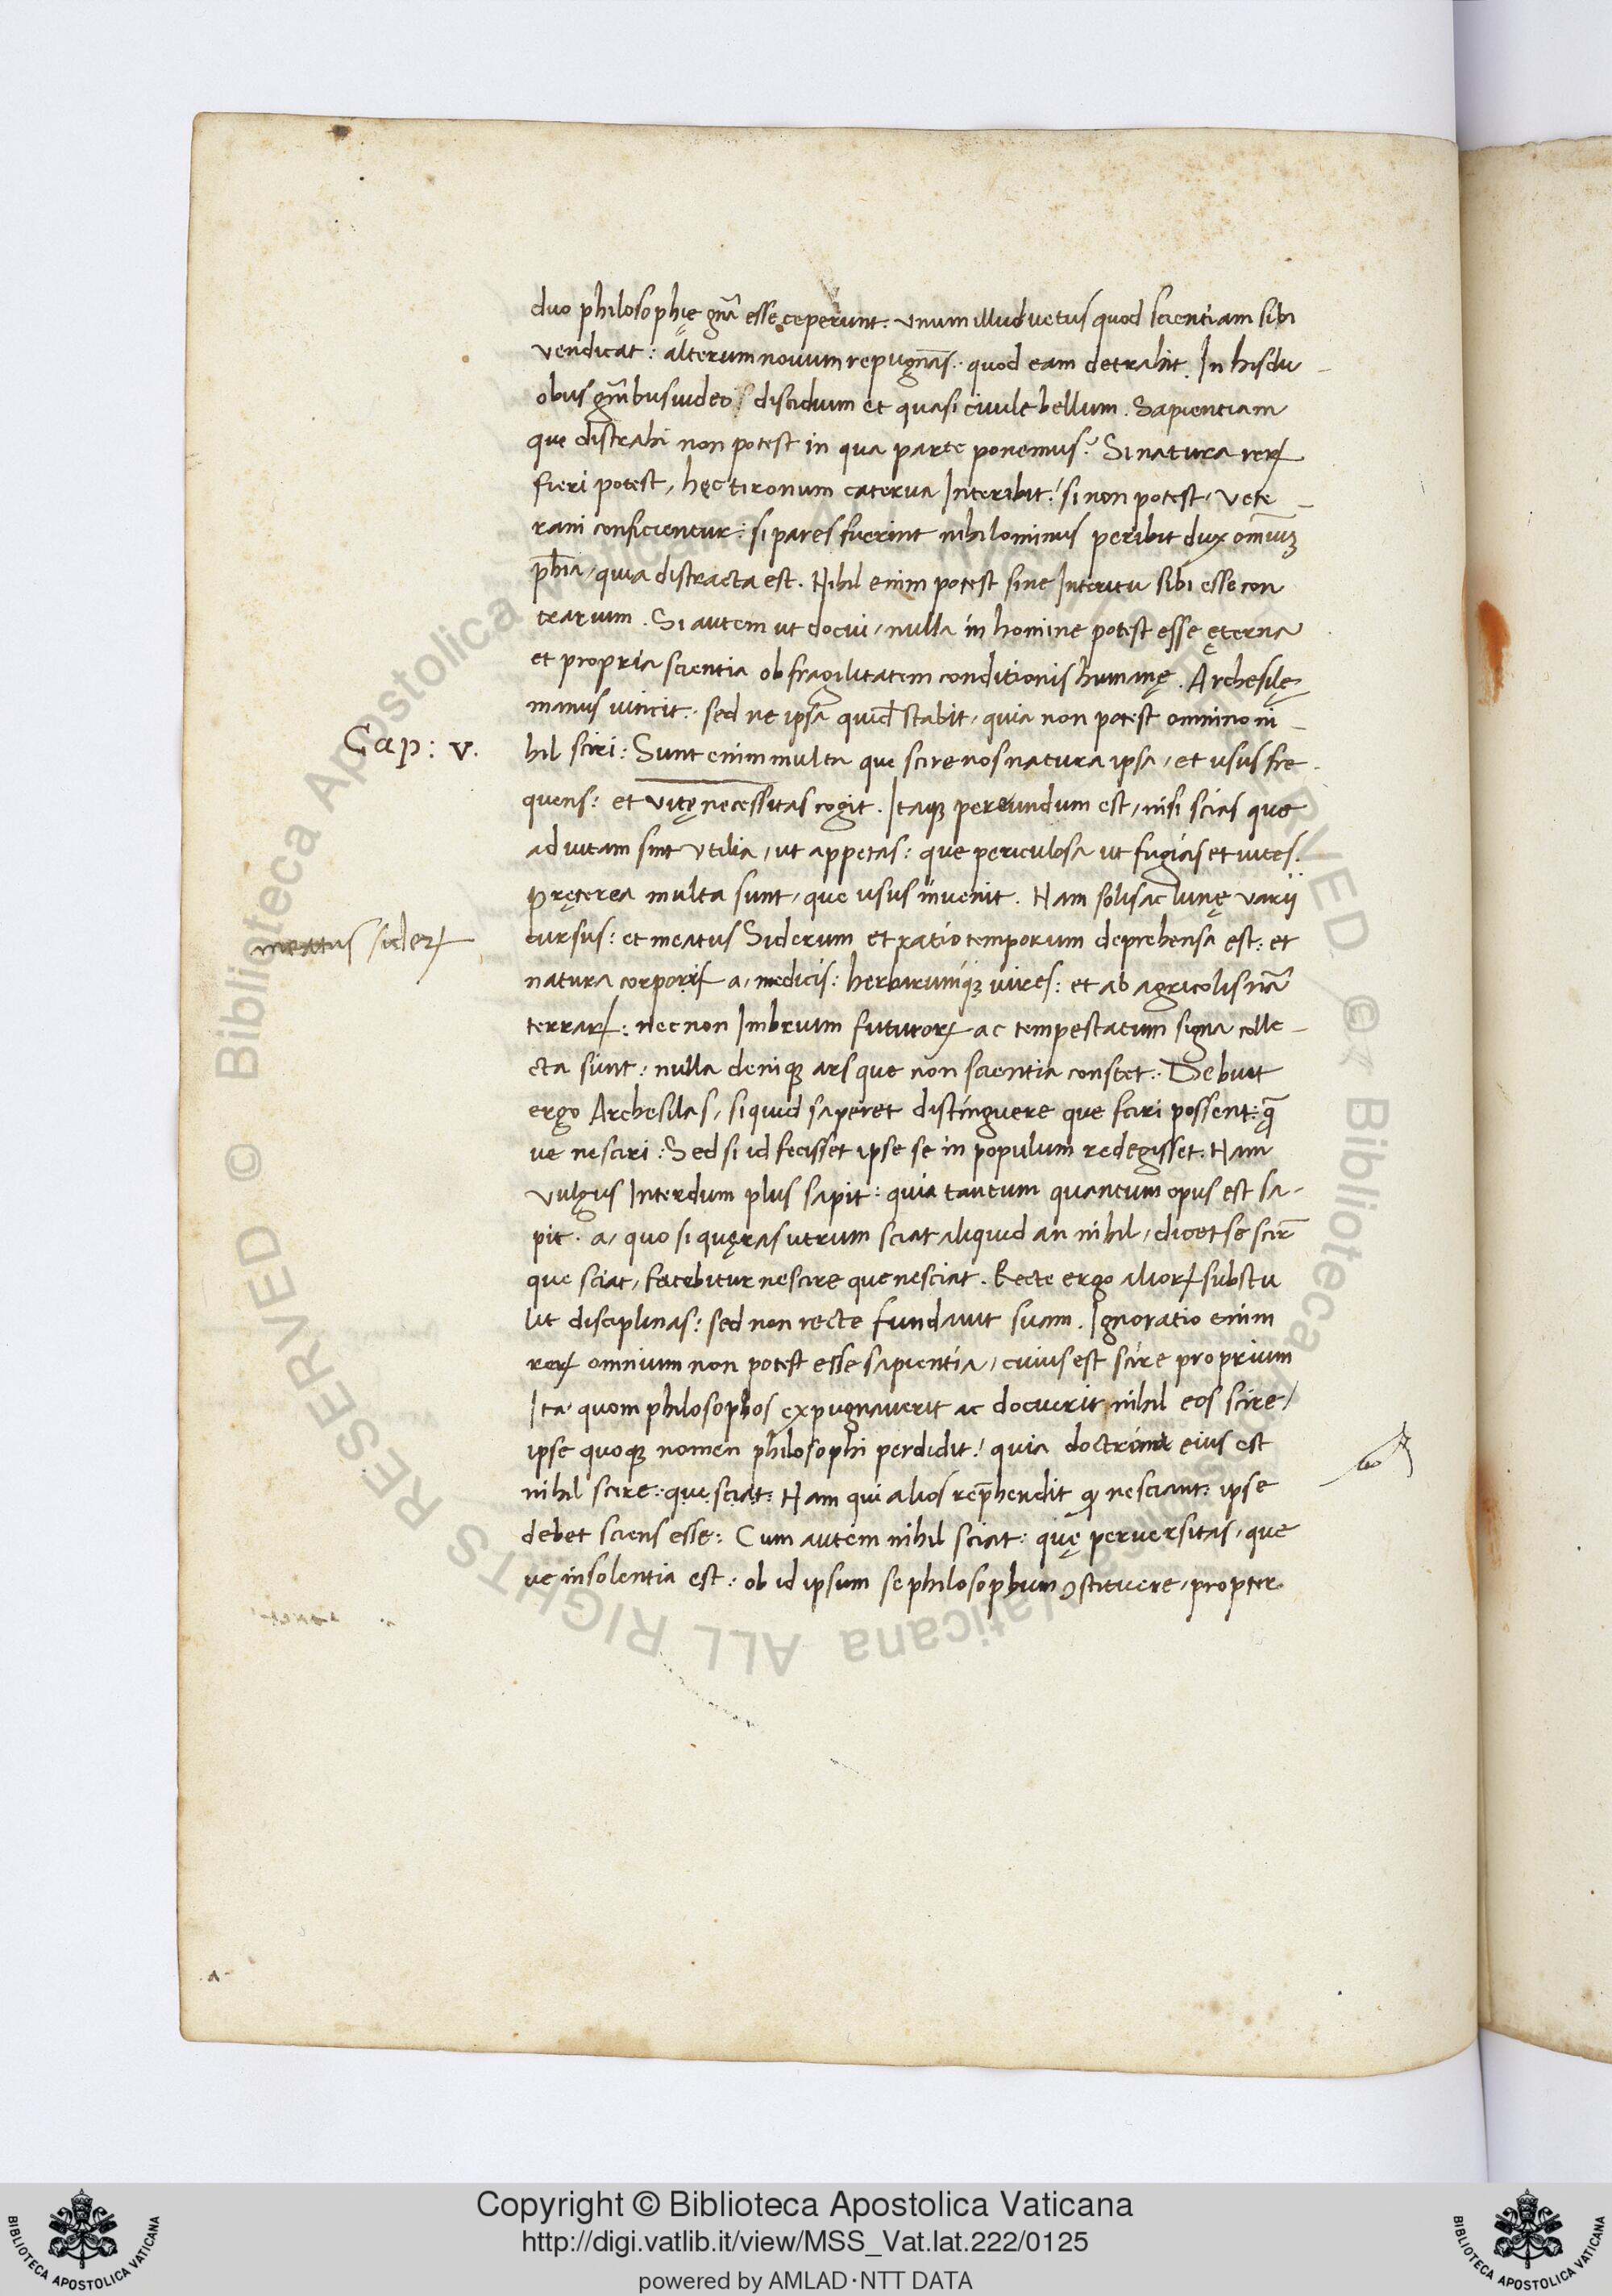 duo philosophię gña esse ceperunt. vnum illud uetus quod scientiam sibi
vendicat: alterum nouum repugnãs. quod eam detrahit. In his du-
obus gñibus uideo discidium et quasi ciuile bellum. Sapientiam
que distrahi non potest in qua parte ponemus? Si natura reꝝ
fieri potest, hęc tironum caterua Interibit: si non potest, vete-
rani conficientur: si pares fuerint nihilominus peribit dux omĩuꝫ
phĩa, quia distracta est. Nihil enim potest sine Interitu sibi esse con
trarium. Si autem ut docui, nulla in homine potest esse ęterna
et propria scientia ob fragilitatem conditionis humanę. Archesilę
manus uincit. sed ne ipsa quid̃ stabit, quia non potest omnino ni-
Cap: v.
hil sciri: Sunt enim multa que scire nos natura ipsa, et usus fre-
quens: et vitę necessitas cogit. Itaqꝫ pereundum est, nisi scias que
ad uitam sint vtilia, ut appetas: que periculosa ut fugias et uites.
Pręterea multa sunt, que usus inuenit. Nam solis ac lunę varii
meatus sideꝝ
cursus: et meatus Siderum et ratio temporum deprehensa est: et
natura corporis a, medicis: herbarumqꝫ uires: et ab agricolis nã
terraꝝ: nec non Imbrium futuroꝝ ac tempestatum signa colle-
cta sunt: nulla deniqꝫ ars que non scientia constet. Debuit
ergo Archesilas, siquid saperet distinguere que sciri possent: q̃
ue nesciri: Sed si id fecisset ipse se in populum redegisset. Nam
vulgus Interdum plus sapit: quia tantum quantum opus est sa-
pit. a, quo si quęras utrum sciat aliquid an nihil, dicet se scir̃
que sciat, fatebitur nescire que nesciat. Recte ergo alioꝝ substu
lit disciplinas: sed non recte fundauit suam. Ignoratio enim
reꝝ omnium non potest esse sapientia, cuius est scire proprium
Ita quom philosophos expugnauerit ac docuerit nihil eos scire/
ipse quoqꝫ nomen philosophi perdidit, quia doctrina eius est
nihil scire: que sciat: Nam qui alios rep̃hendit ꝙ nesciant: ipse
debet sciens esse: Cum autem nihil sciat: quę peruersitas, que
ue insolentia est: ob id ipsum se philosophum ꝯstituere, propter
Copyright © Biblioteca Apostolica Vaticana
http://digi.vatlib.it/view/MSS_Vat.lat.222/0125
powered by AMLAD·NTT DATA
BIBLIOTECA APOSTOLICA VATICANA
BIBLIOTECA APOSTOLICA VATICANA